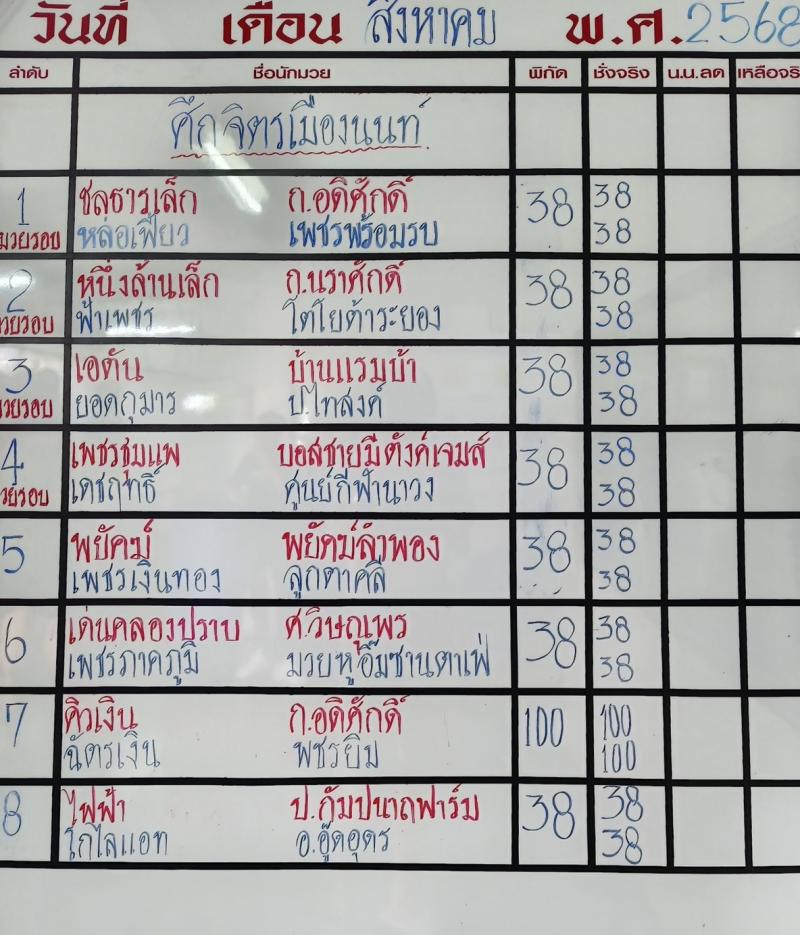 วันที่ เดือน สิงหาคม พ.ศ. 2568
ลำดับ ชื่อนักมวย พิกัด ชั่งจริง น.น.ลด เหลือจริ
ศึกจิตรเมืองนนท์
1 ชลธารเล็ก ก.อดิศักดิ์ 38 38
มวยรอบ หล่อเฟี้ยว เพชรพร้อมรบ 38
2 หนึ่งล้านเล็ก ก.นราศักดิ์ 38 38
วยรอบ ฟ้าเพชร โตโยต้าระยอง 38
3 เอตัน บ้านแรมบ้า 38 38
วยรอบ ยอดกุมาร ป.ไทสงค์ 38
4 เพชรชุมแพ บอสชายมีตังค์เจมส์ 38 38
วยรอบ เดชฤทธิ์ ศูนย์กีฬานาวง 38
5 พยัคฆ์ พยัคฆ์ลำพอง 38 38
เพชรเงินทอง ลูกตาคลี 38
6 เด่นคลองปราบ ศ.วิษณุพร 38 38
เพชรภาคภูมิ มวยหูอื้มซานตาเฟ่ 38
7 คิวเงิน ก.อดิศักดิ์ 100 100
ฉัตรเงิน พชรยิม 100
8 ไฟฟ้า ป.กัมปนาถฟาร์ม 38 38
โกไลแอท อ.อู๊ดอุดร 38